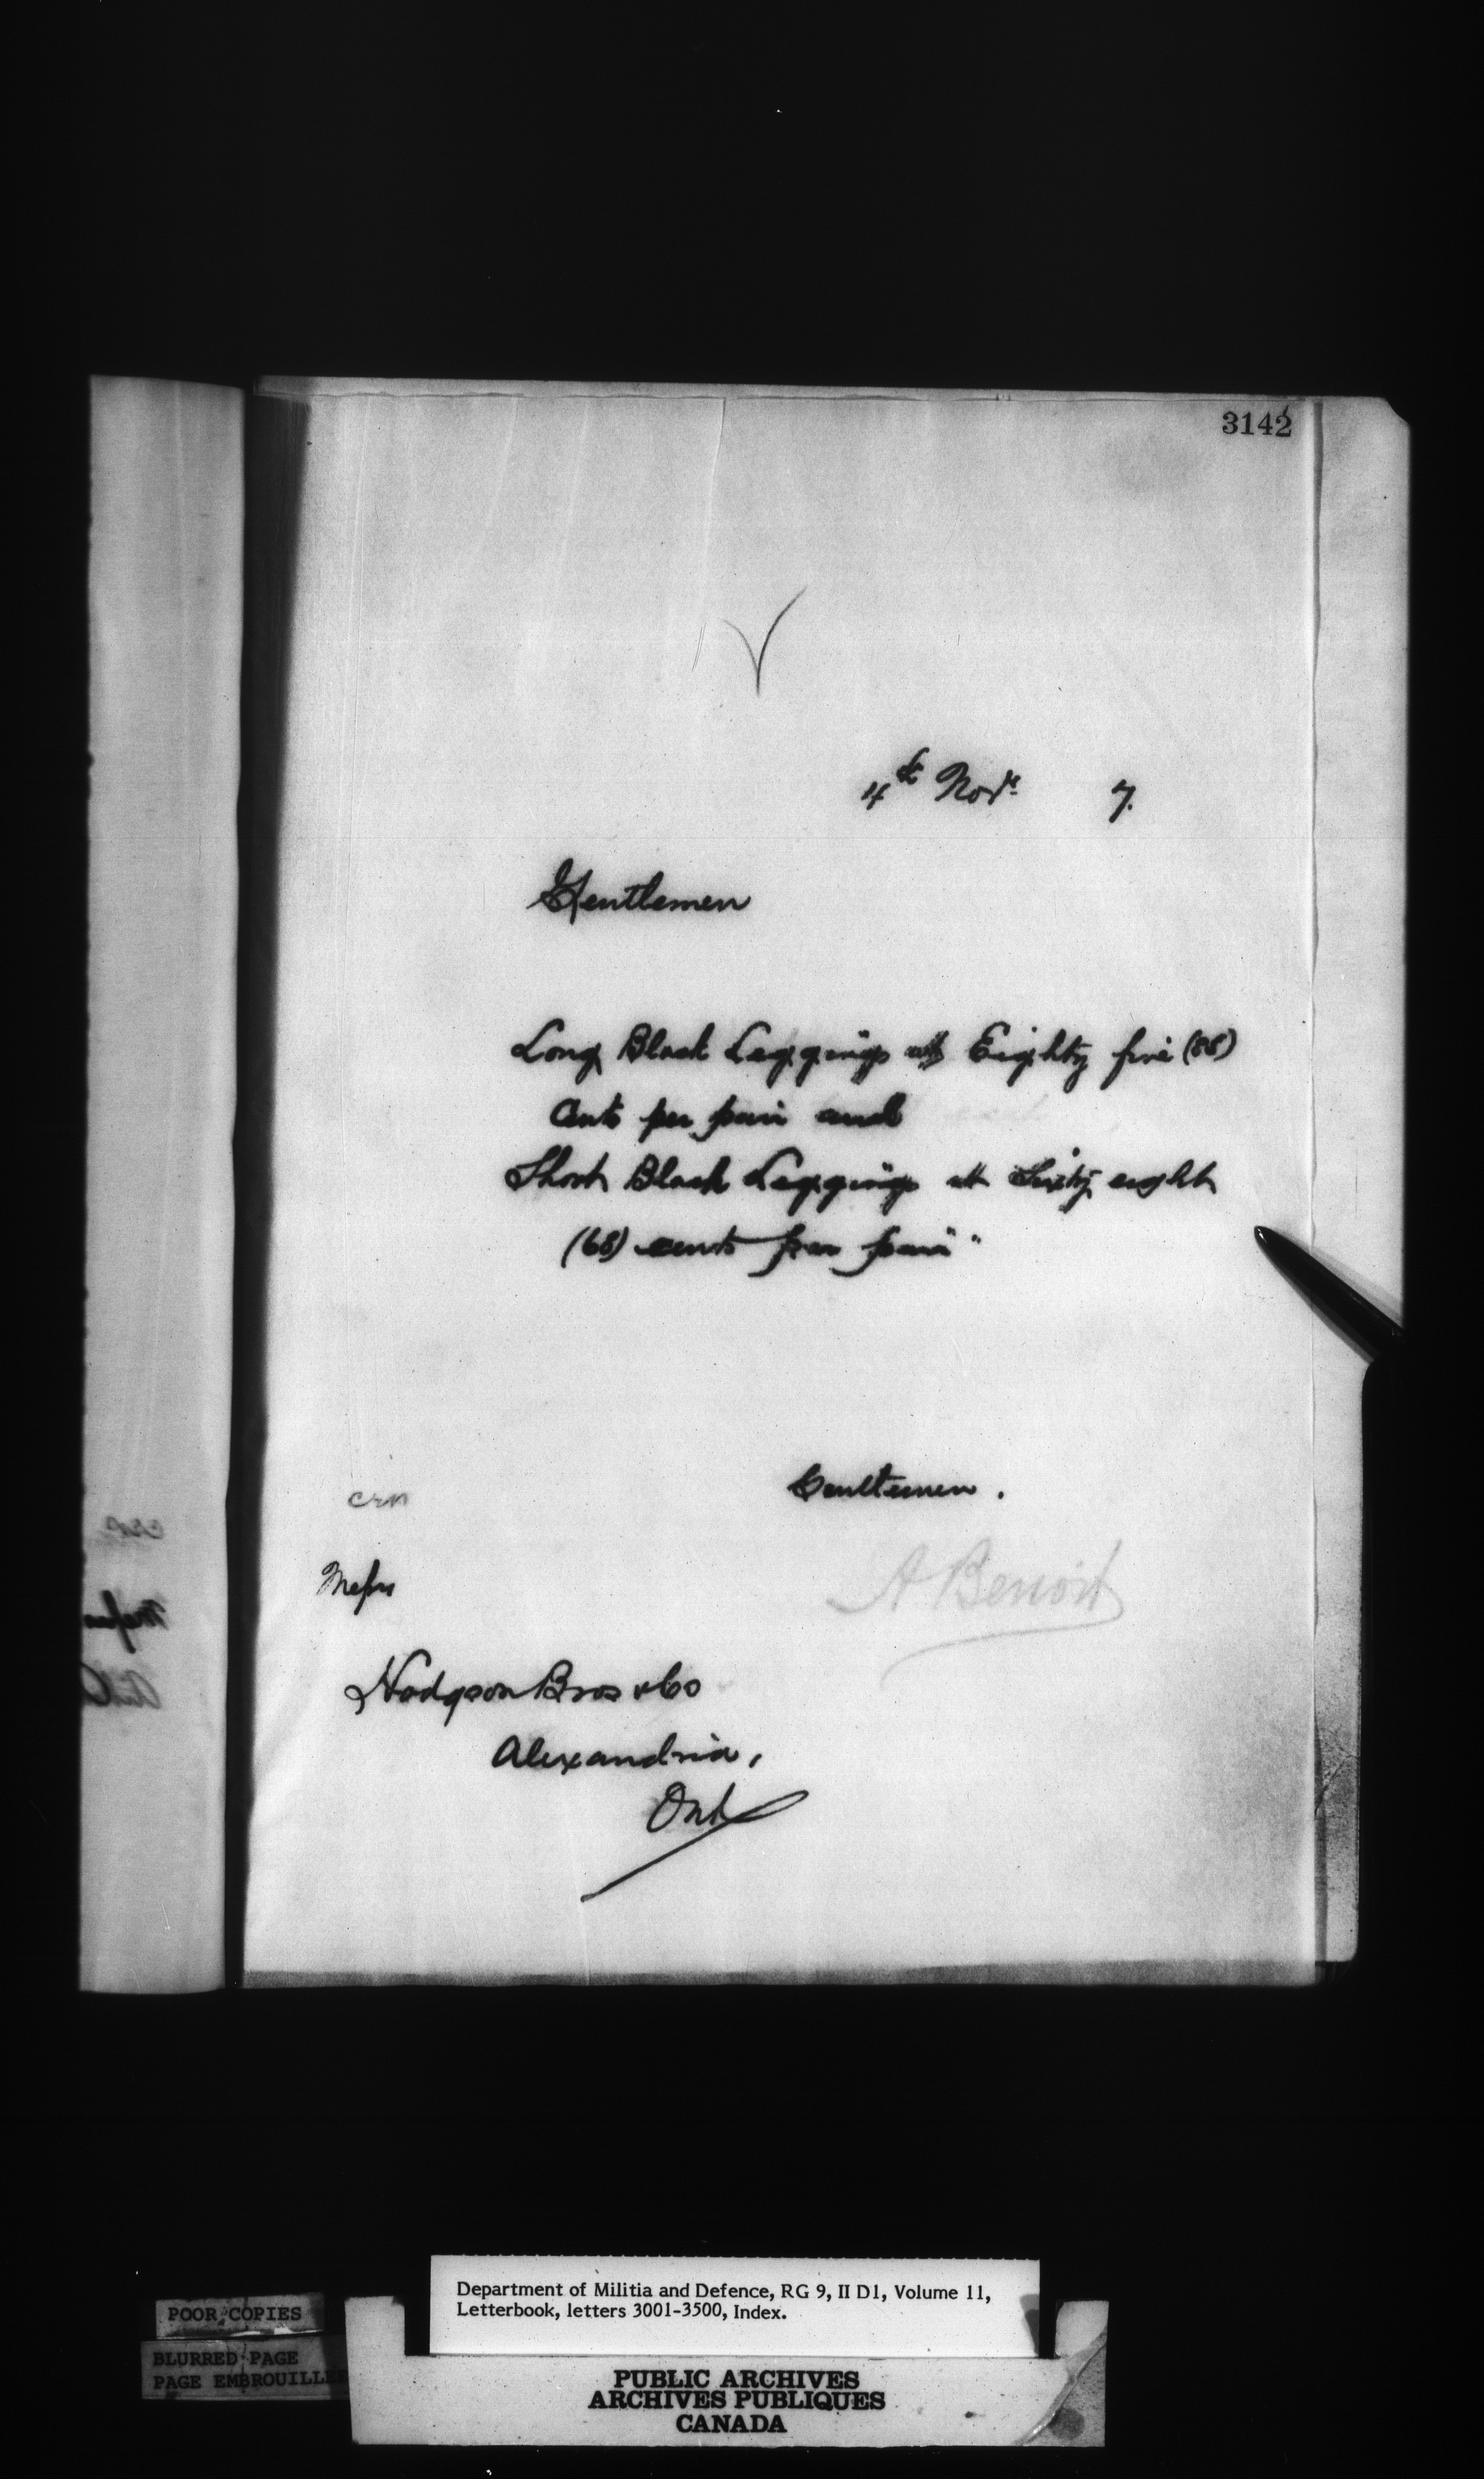 3142
4th Novr. 7.
Gentlemen
Long Black Leggings at Eighty five (85)
Cents per pair and
Short Black Leggings at Sixty eight
(68) cents per pair"
Gentlemen.
Messrs
A Benoit
Hodgson Bros & Co
Alexandria,
Ont
Department of Militia and Defence, RG 9, II D1, Volume 11,
Letterbook, letters 3001-3500, Index.
POOR COPIES
BLURRED PAGE
PAGE EMBROUILLE
PUBLIC ARCHIVES
ARCHIVES PUBLIQUES
CANADA